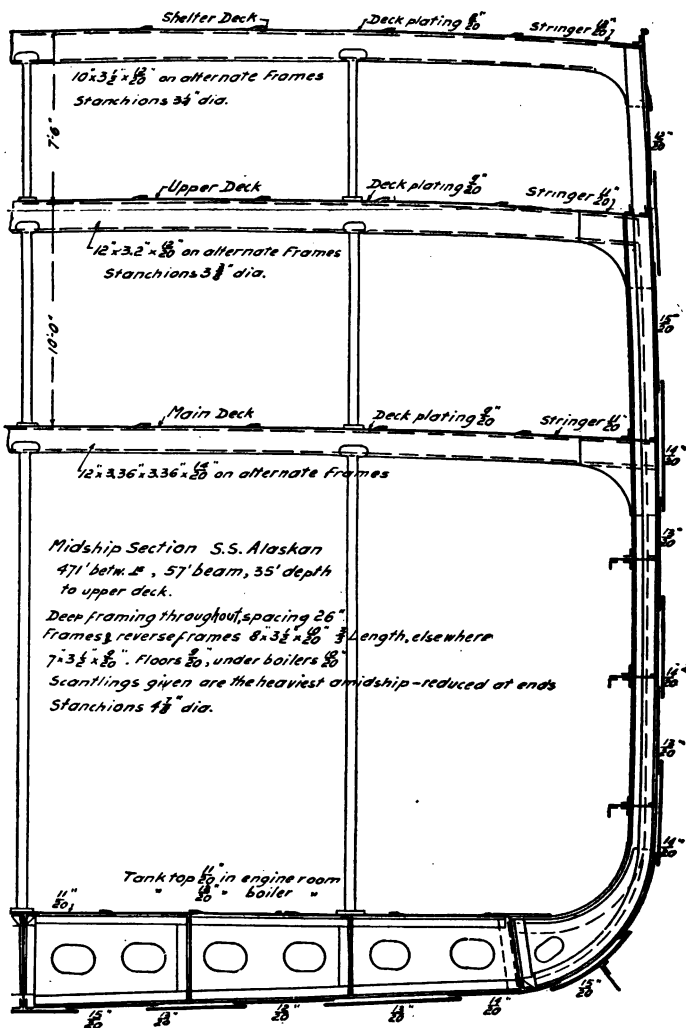 Shelter Deck
Deck plating 8/20"
7'-6"
10" x 3 1/2 x 12/20" on alternate Frames
Upper Deck
Deck plating 9/20"
Stringer 11/20"
12" x 3.2" x 12/20" on alternate Frames
Stanchions 3 7/8" dia.
10'-0"
15/20"
Main Deck
Deck plating 9/20"
Stringer 11/20"
12" x 3.36" x 3.36" x 14/20" on alternate Frames
14/20"
13/20"
Midship Section S.S. Alaskan
471' betw. , 57' beam, 35' depth
to upper deck.
Deep framing throughout, spacing 26"
Frames & reverse frames 8" x 3 1/2" x 10/20" Length, elsewhere
7" x 3 1/2" x 9/20". Floors 9/20", under boilers 10/20"
Scantlings given are the heaviest amidship - reduced at ends
Stanchions 4 7/8" dia.
14/20"
13/20"
14/20"
Tank top 11/20" in engine room
" " boiler "
11/20"
15/20"
13/20"
13/20"
15/20"